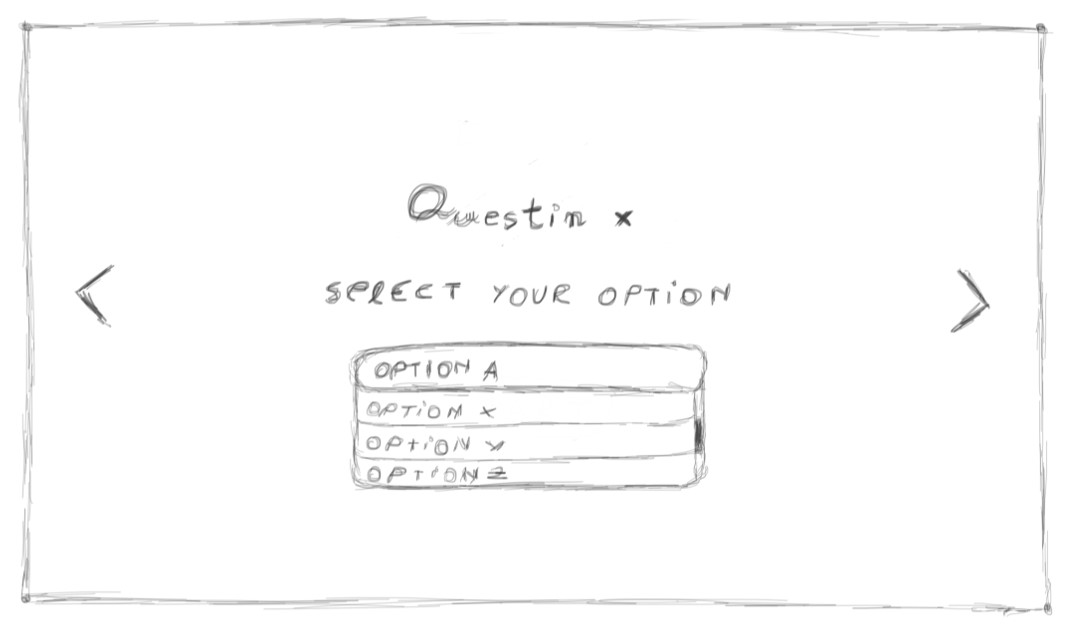 Questin x
SELECT YOUR OPTION
OPTION A
OPTION X
OPTION Y
OPTION Z